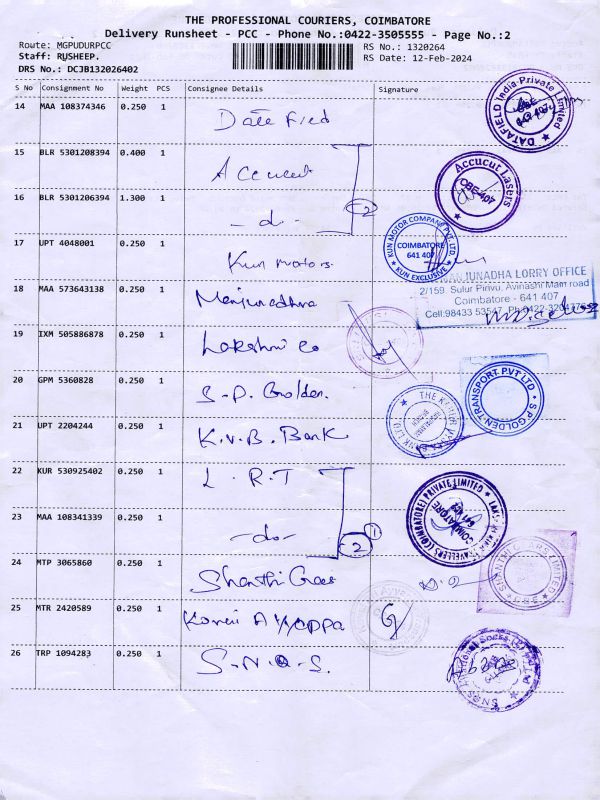 THE PROFESSIONAL COURIERS, COIMBATORE
Delivery Runsheet - PCC - Phone No.:0422-3505555 - Page No.:2
Route: MGPUDURPCC
RS No.: 1320264
Staff: RUSHEEP.
RS Date: 12-Feb-2024
DRS No.: DCJB132026402
S No Consignment No Weight PCS Consignee Details Signature
14 MAA 108374346 0.250 1 Data Fied
DATAFIELD India Private Limited
15 BLR 5301208394 0.400 1 Accucut
Accucut Lasers
CBE-407
16 BLR 5301206394 1.300 1 -d- 2
KUN MOTOR COMPANY PVT. LTD.
COIMBATORE
641 407
KUN EXCLUSIVE
17 UPT 4048001 0.250 1 Kun motors.
JUNADHA LORRY OFFICE
2/159, Sulur Pirivu, Avinashi Main road
Coimbatore - 641 407
18 MAA 573643138 0.250 1 Manjunadhra
19 IXM 505886878 0.250 1 Lakshmi Co
20 GPM 5360828 0.250 1 S-P. Golden.
S P GOLDEN TRANSPORT PVT LTD
21 UPT 2204244 0.250 1 K.V.B. Bank
THE KARUR
BANK LTD
22 KUR 530925402 0.250 1 L. R. T
TRAVELLERS (COIMBATORE) PRIVATE LIMITED
COIMBATORE
23 MAA 108341339 0.250 1 -do- 2 1
24 MTP 3065860 0.250 1 Shanthi Gears
SHANTHI GEARS LIMITED
25 MTR 2420589 0.250 1 Ayyappa
26 TRP 1094283 0.250 1 S.N.Q.S.
SNQS